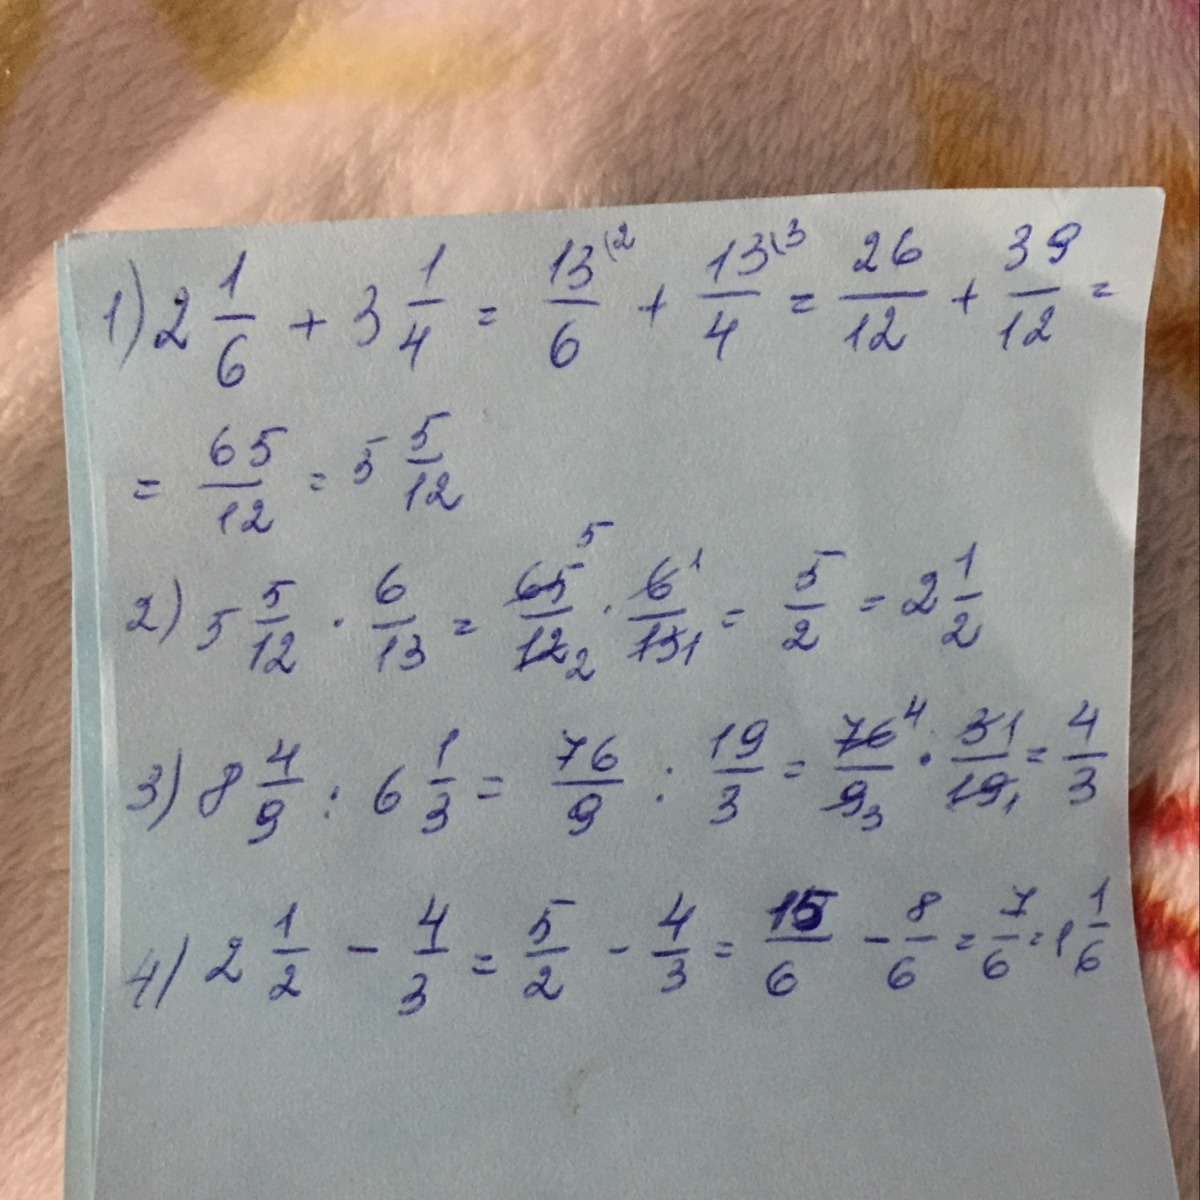 1) 2 1/6 + 3 1/4 = 13/6 (2 + 13/4 (3 = 26/12 + 39/12 =
= 65/12 = 5 5/12
2) 5 5/12 · 6/13 = 65 5/12 2 · 6 1/13 1 = 5/2 = 2 1/2
3) 8 4/9 : 6 1/3 = 76/9 : 19/3 = 76 4/9 3 · 3 1/19 1 = 4/3
4) 2 1/2 - 4/3 = 5/2 - 4/3 = 15/6 - 8/6 = 7/6 = 1 1/6